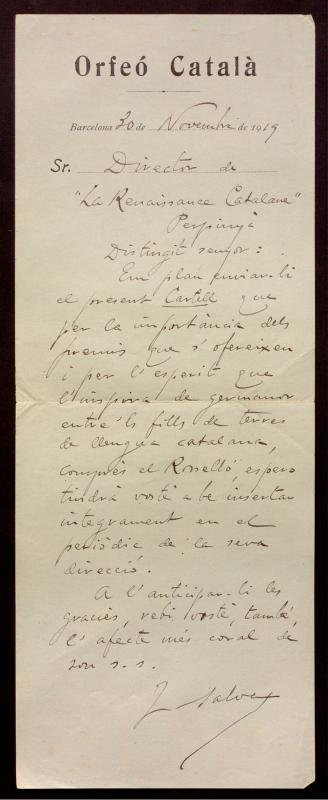 Orfeó Català
Barcelona 30 de Novembre de 1919
Sr. Director de
"La Renaissance Catalane"
Perpinyà
Distingit senyor:
Em plau enviar-li
el present Cartell que
per la importància dels
premis que s'ofereixen
i per l'esperit que
l'inspira de germanor
entre'ls fills de terres
de llengua catalana,
comprés el Rosselló, espero
tindrà vosté a be insertar
integrament en el
periòdic de la seva
direcció.
A l'anticipar-li les
gracies, rebi vosté, també,
l'afecte més coral de
son s. s.